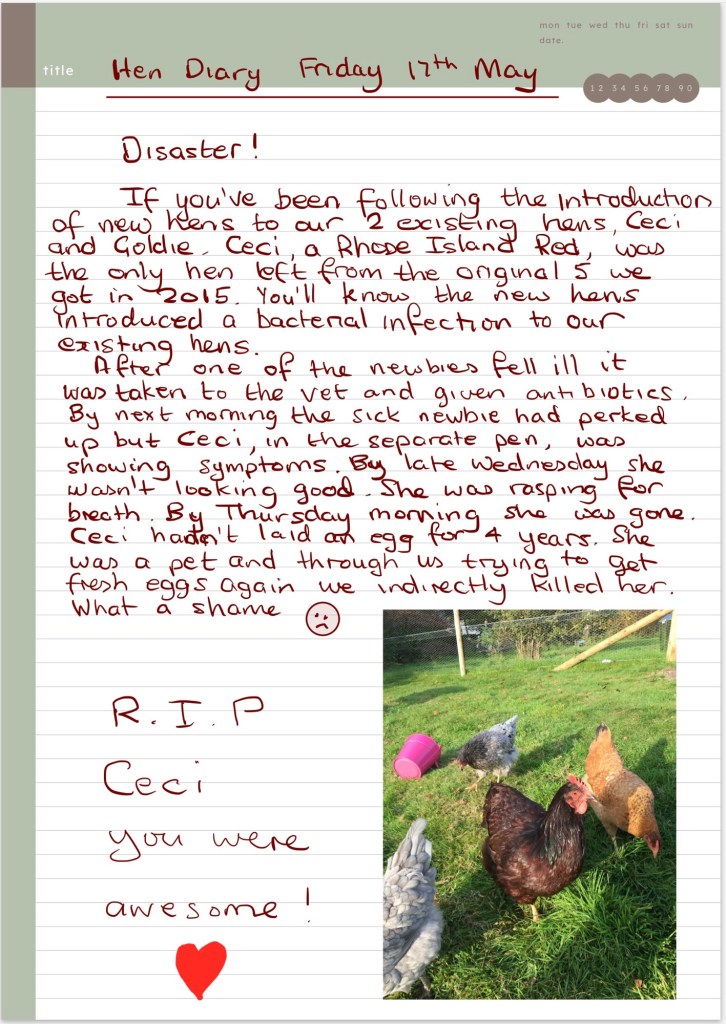 mon tue wed thu fri sat sun
date.
title
Hen Diary Friday 17th May
1 2 3 4 5 6 7 8 9 0
Disaster!
If you've been following the introduction
of new hens to our 2 existing hens, Ceci
and Goldie. Ceci, a Rhode Island Red, was
the only hen left from the original 5 we
got in 2015. You'll know the new hens
introduced a bacterial infection to our
existing hens.
After one of the newbies fell ill it
was taken to the vet and given antibiotics.
By next morning the sick newbie had perked
up but Ceci, in the separate pen, was
showing symptoms. By late Wednesday she
wasn't looking good. She was rasping for
breath. By Thursday morning she was gone.
Ceci hadn't laid an egg for 4 years. She
was a pet and through us trying to get
fresh eggs again we indirectly killed her.
What a shame
R.I.P
Ceci
you were
awesome!